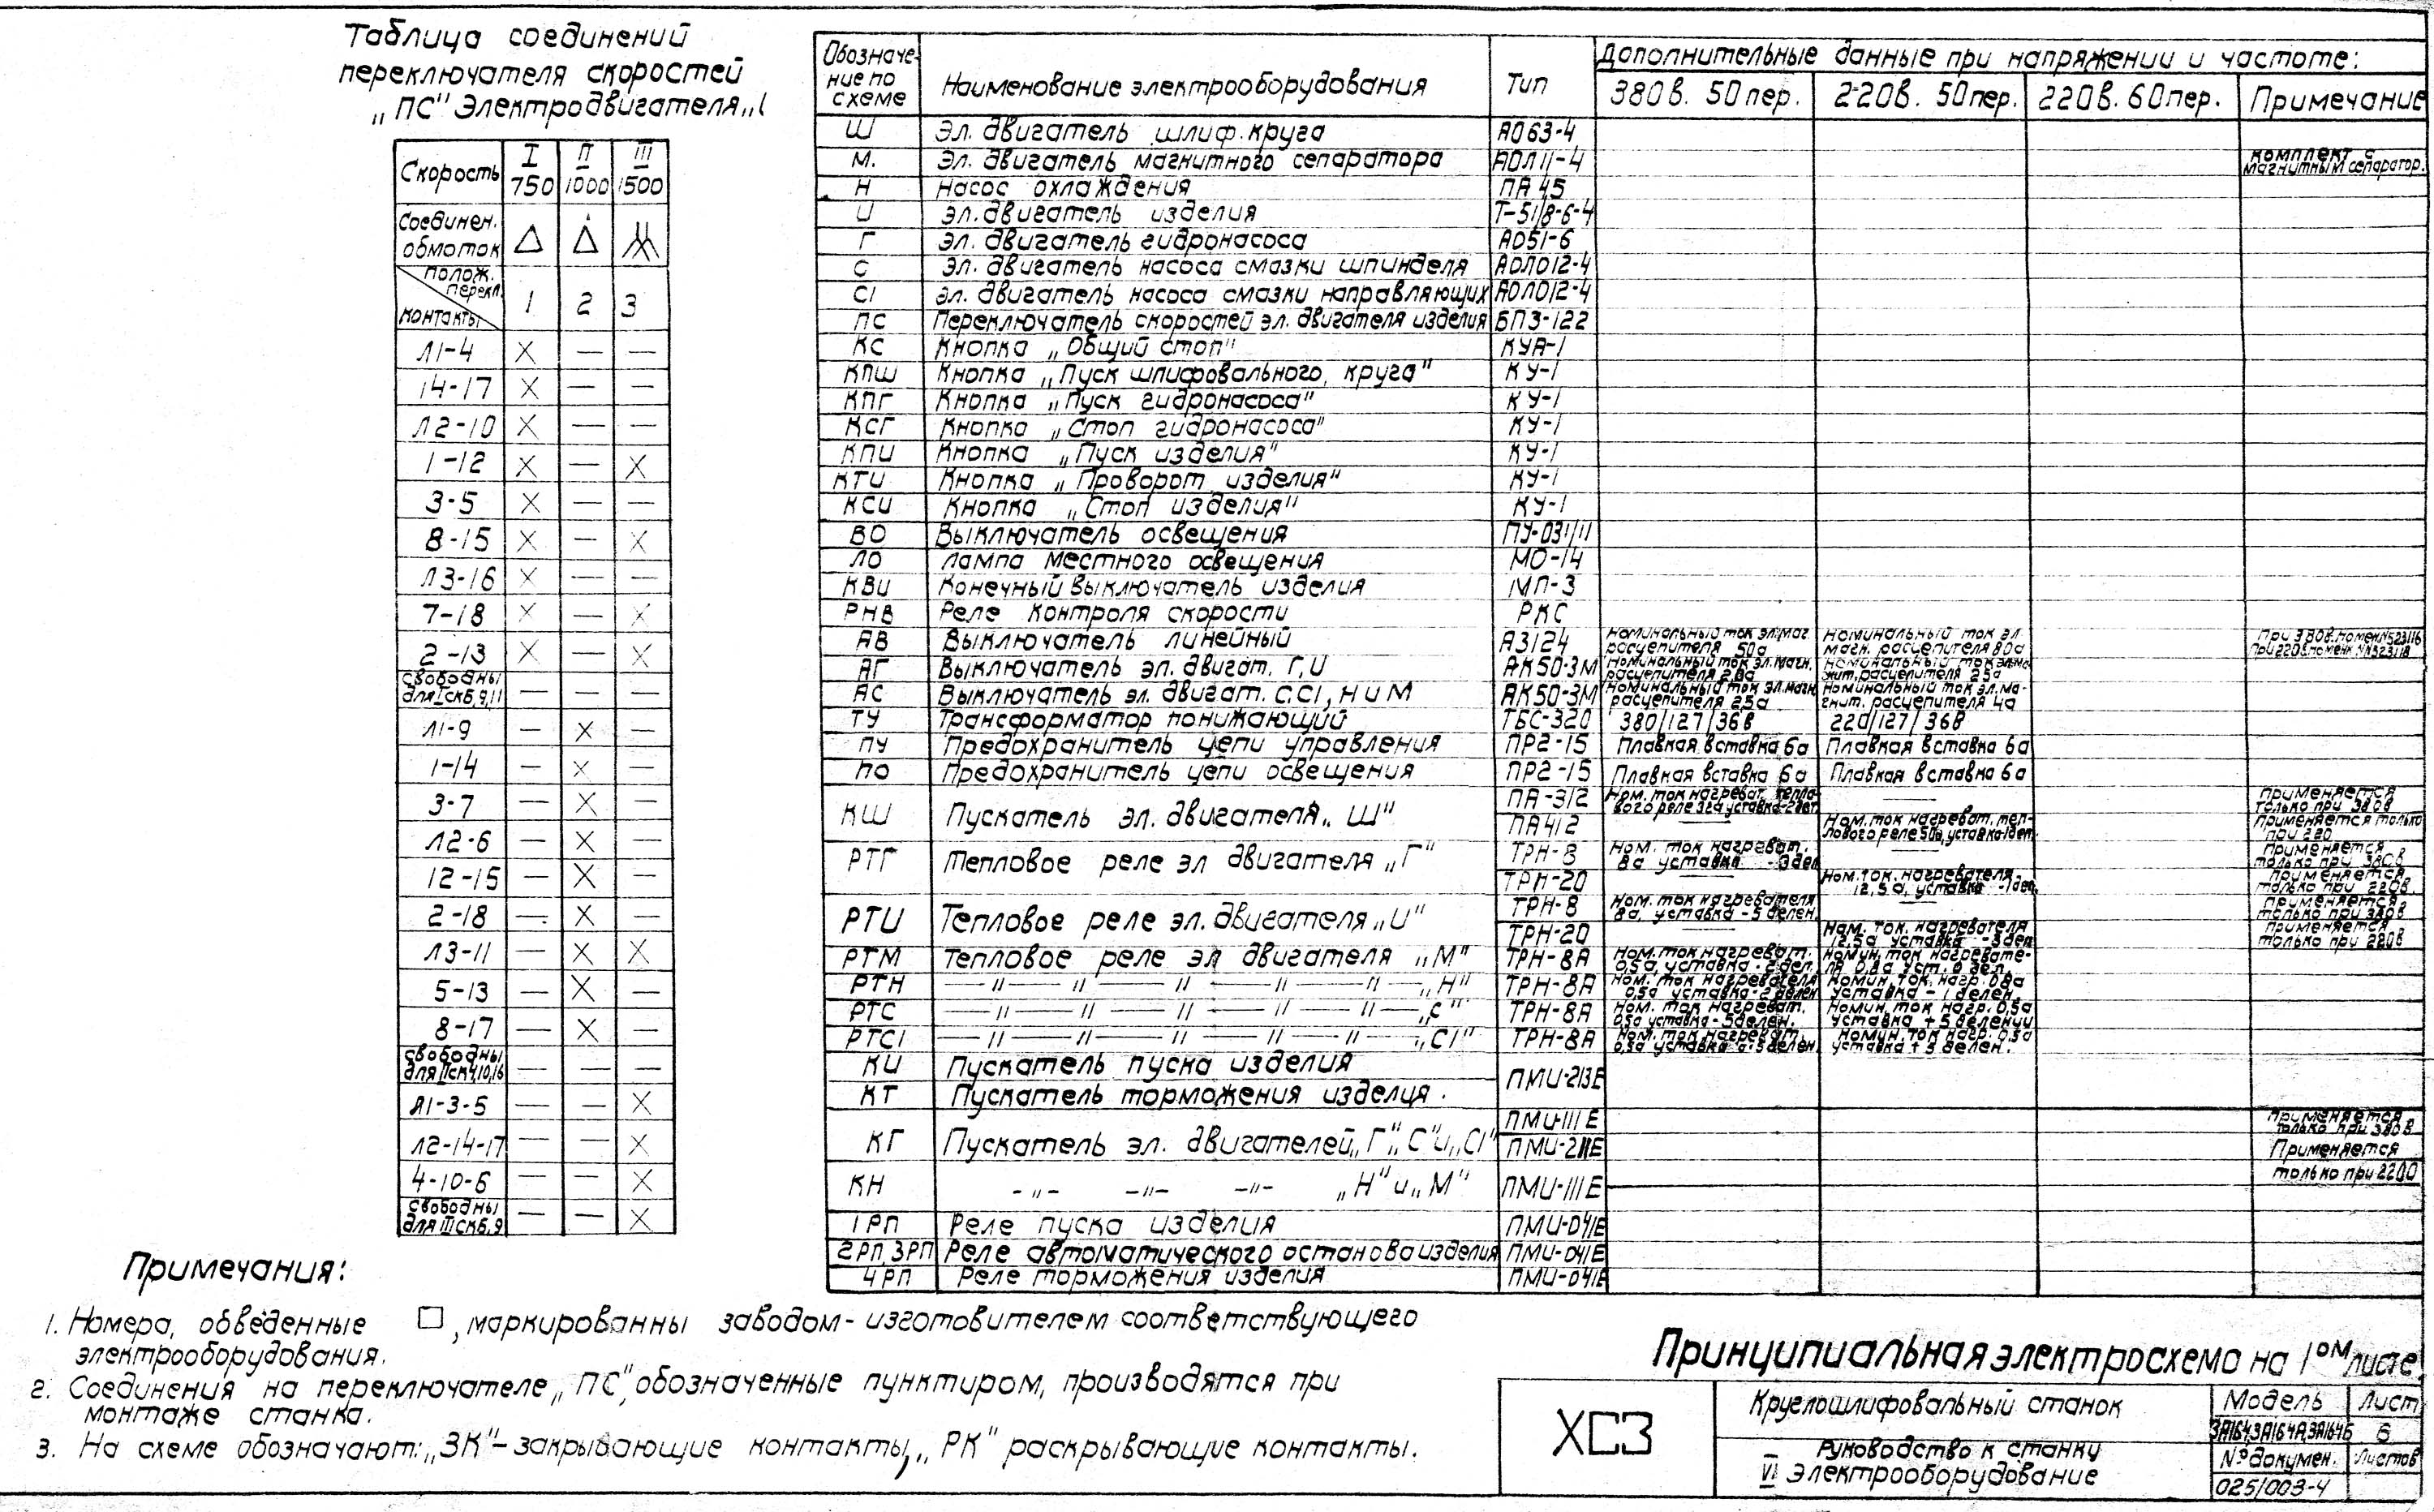 Таблица соединений
переключателя скоростей
„ПС" Электродвигателя „
Скорость I 750 II 1000 III 1500
Соединен.
обмоток
полож.
перекл.
контакты 1 2 3
Л1-4 X — —
14-17 X — —
Л2-10 X — —
1-12 X — X
3-5 X — —
8-15 X — X
Л3-16 X — —
7-18 X — X
2-13 X — X
свободны
для I ск 6,9,11 — — —
Л1-9 — X —
1-14 — X —
3-7 — X —
Л2-6 — X —
12-15 — X —
2-18 — X —
Л3-11 — X X
5-13 — X —
8-17 — X —
свободны
для II ск 4,10,16 — — —
Л1-3-5 — — X
Л2-14-17 — — X
4-10-6 — — X
свободны
для III ск 6,9 — — X
Обозначе-
ние по
схеме
Наименование электрооборудования
Тип
Дополнительные данные при напряжении и частоте:
380в. 50пер. 220в. 50пер. 220в. 60пер. Примечание
Ш Эл. двигатель шлиф. круга АО63-4
М. Эл. двигатель магнитного сепаратора АОЛ11-4 комплект с
магнитным сепаратор.
Н Насос охлаждения ПА 45
И эл. двигатель изделия Т-51/8-6-4
Г эл. двигатель гидронасоса АО51-6
С Эл. двигатель насоса смазки шпинделя АОЛ012-4
С1 эл. двигатель насоса смазки направляющих АОЛ012-4
ПС Переключатель скоростей эл. двигателя изделия БПЗ-122
КС Кнопка „Общий стоп" КУА-1
КПШ Кнопка „Пуск шлифовального круга" КУ-1
КПГ Кнопка „Пуск гидронасоса" КУ-1
КСГ Кнопка „Стоп гидронасоса" КУ-1
КПИ Кнопка „Пуск изделия" КУ-1
КТИ Кнопка „Проворот изделия" КУ-1
КСИ Кнопка „Стоп изделия" КУ-1
ВО Выключатель освещения ПУ-031/11
ЛО лампа местного освещения МО-14
КВИ Конечный выключатель изделия МП-3
РНВ Реле контроля скорости РКС
АВ Выключатель линейный А3124 Номинальный ток эл. маг. расцепителя 50а Номинальный ток эл. магн. расцепителя 80а При 380в. номен. N523116
При 220в. номенк. N523118
АГ Выключатель эл. двигат. Г, И АК50-3М Номинальный ток эл. магн. расцепителя 20а Номинальный ток эл. маг нит. расцепителя 25а
АС Выключатель эл. двигат. С, С1, Н и М АК50-3М Номинальный ток эл. магн. расцепителя 2,5а Номинальный ток эл. ма- гнит. расцепителя 4а
ТУ Трансформатор понижающий ТБС-320 380/127/36в 220/127/36в
ПУ Предохранитель цепи управления ПР2-15 Плавкая вставка 6а Плавкая вставка 6а
ПО Предохранитель цепи освещения ПР2-15 Плавкая вставка 6а Плавкая вставка 6а
КШ Пускатель эл. двигателя „Ш" ПА-312 Ном. ток нагреват. тепло- вого реле 32а уставка-2дел. — применяется
только при 380в
ПА412 — Ном. ток нагреват. теп- лового реле 50а, уставка-1дел. применяется только
при 220
РТГ Тепловое реле эл двигателя „Г" ТРН-8 Ном. ток нагреват. 8а уставка -3дел — применяется
только при 380в
ТРН-20 — Ном. ток. нагревателя 12,5а, уставка -1дел. применяется
только при 220в.
РТИ Тепловое реле эл. двигателя „И" ТРН-8 Ном. ток нагревателя 8а, уставка -5 делен. — применяется
только при 380в
ТРН-20 — Ном. ток. нагревателя 12,5а уставка -3дел применяется
только при 220в
РТМ тепловое реле эл двигателя „М" ТРН-8А Ном. ток нагреват. 0,5а, уставка -2 дел. Номин. ток нагревате- ля 0,8а уст. 0 дел.
РТН —"— —"— —"— —"— „Н" ТРН-8А Ном. ток нагревателя 0,5а уставка -2 делен Номин. ток. нагр. 0,8а уставка -1 делен.
РТС —"— —"— —"— —"— „С" ТРН-8А Ном. ток нагреват. 0,5а уставка -5делен. Номин. ток нагр. 0,5а уставка +5 делений
РТС1 —"— —"— —"— —"— „С1" ТРН-8А Ном. ток нагреват. 0,5а уставка -5 делен. Номин. ток нагр. 0,5а уставка +5 делен.
КИ Пускатель пуска изделия ПМИ-213Е
КТ Пускатель торможения изделия.
КГ Пускатель эл. двигателей „Г", „С" и „С1" ПМИ-111Е применяется
только при 380в
ПМИ-211Е Применяется
только при 220
КН -"- -"- -"- „Н" и „М" ПМИ-111Е
1РП Реле пуска изделия ПМИ-041Е
2РП, 3РП Реле автоматического останова изделия ПМИ-041Е
4РП Реле торможения изделия ПМИ-041Е
Примечания:
1. Номера, обведенные □, маркированны заводом-изготовителем соответствующего
электрооборудования.
2. Соединения на переключателе „ПС", обозначенные пунктиром, производятся при
монтаже станка.
3. На схеме обозначают: „ЗК"- закрывающие контакты, „РК" раскрывающие контакты.
Принципиальная электросхема на 1ом листе.
ХСЗ
Круглошлифовальный станок
Модель Лист
3А164, 3А164А, 3А164Б 6
Руководство к станку
VI Электрооборудование
№докумен. Листов
025/003-4